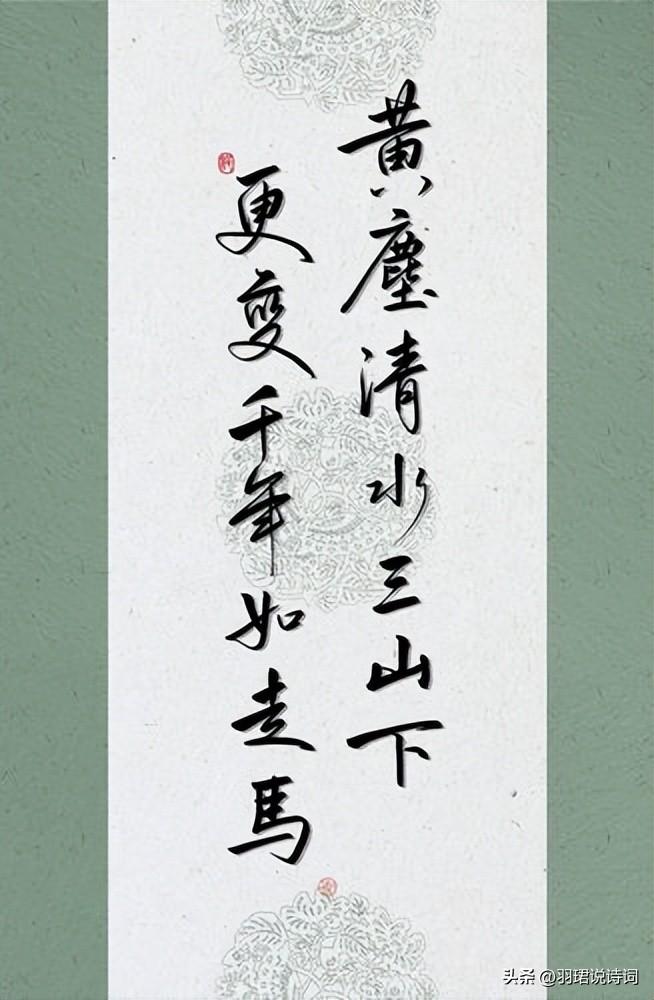 黄塵清水三山下
更變千年如走馬
头条 @羽珺说诗词